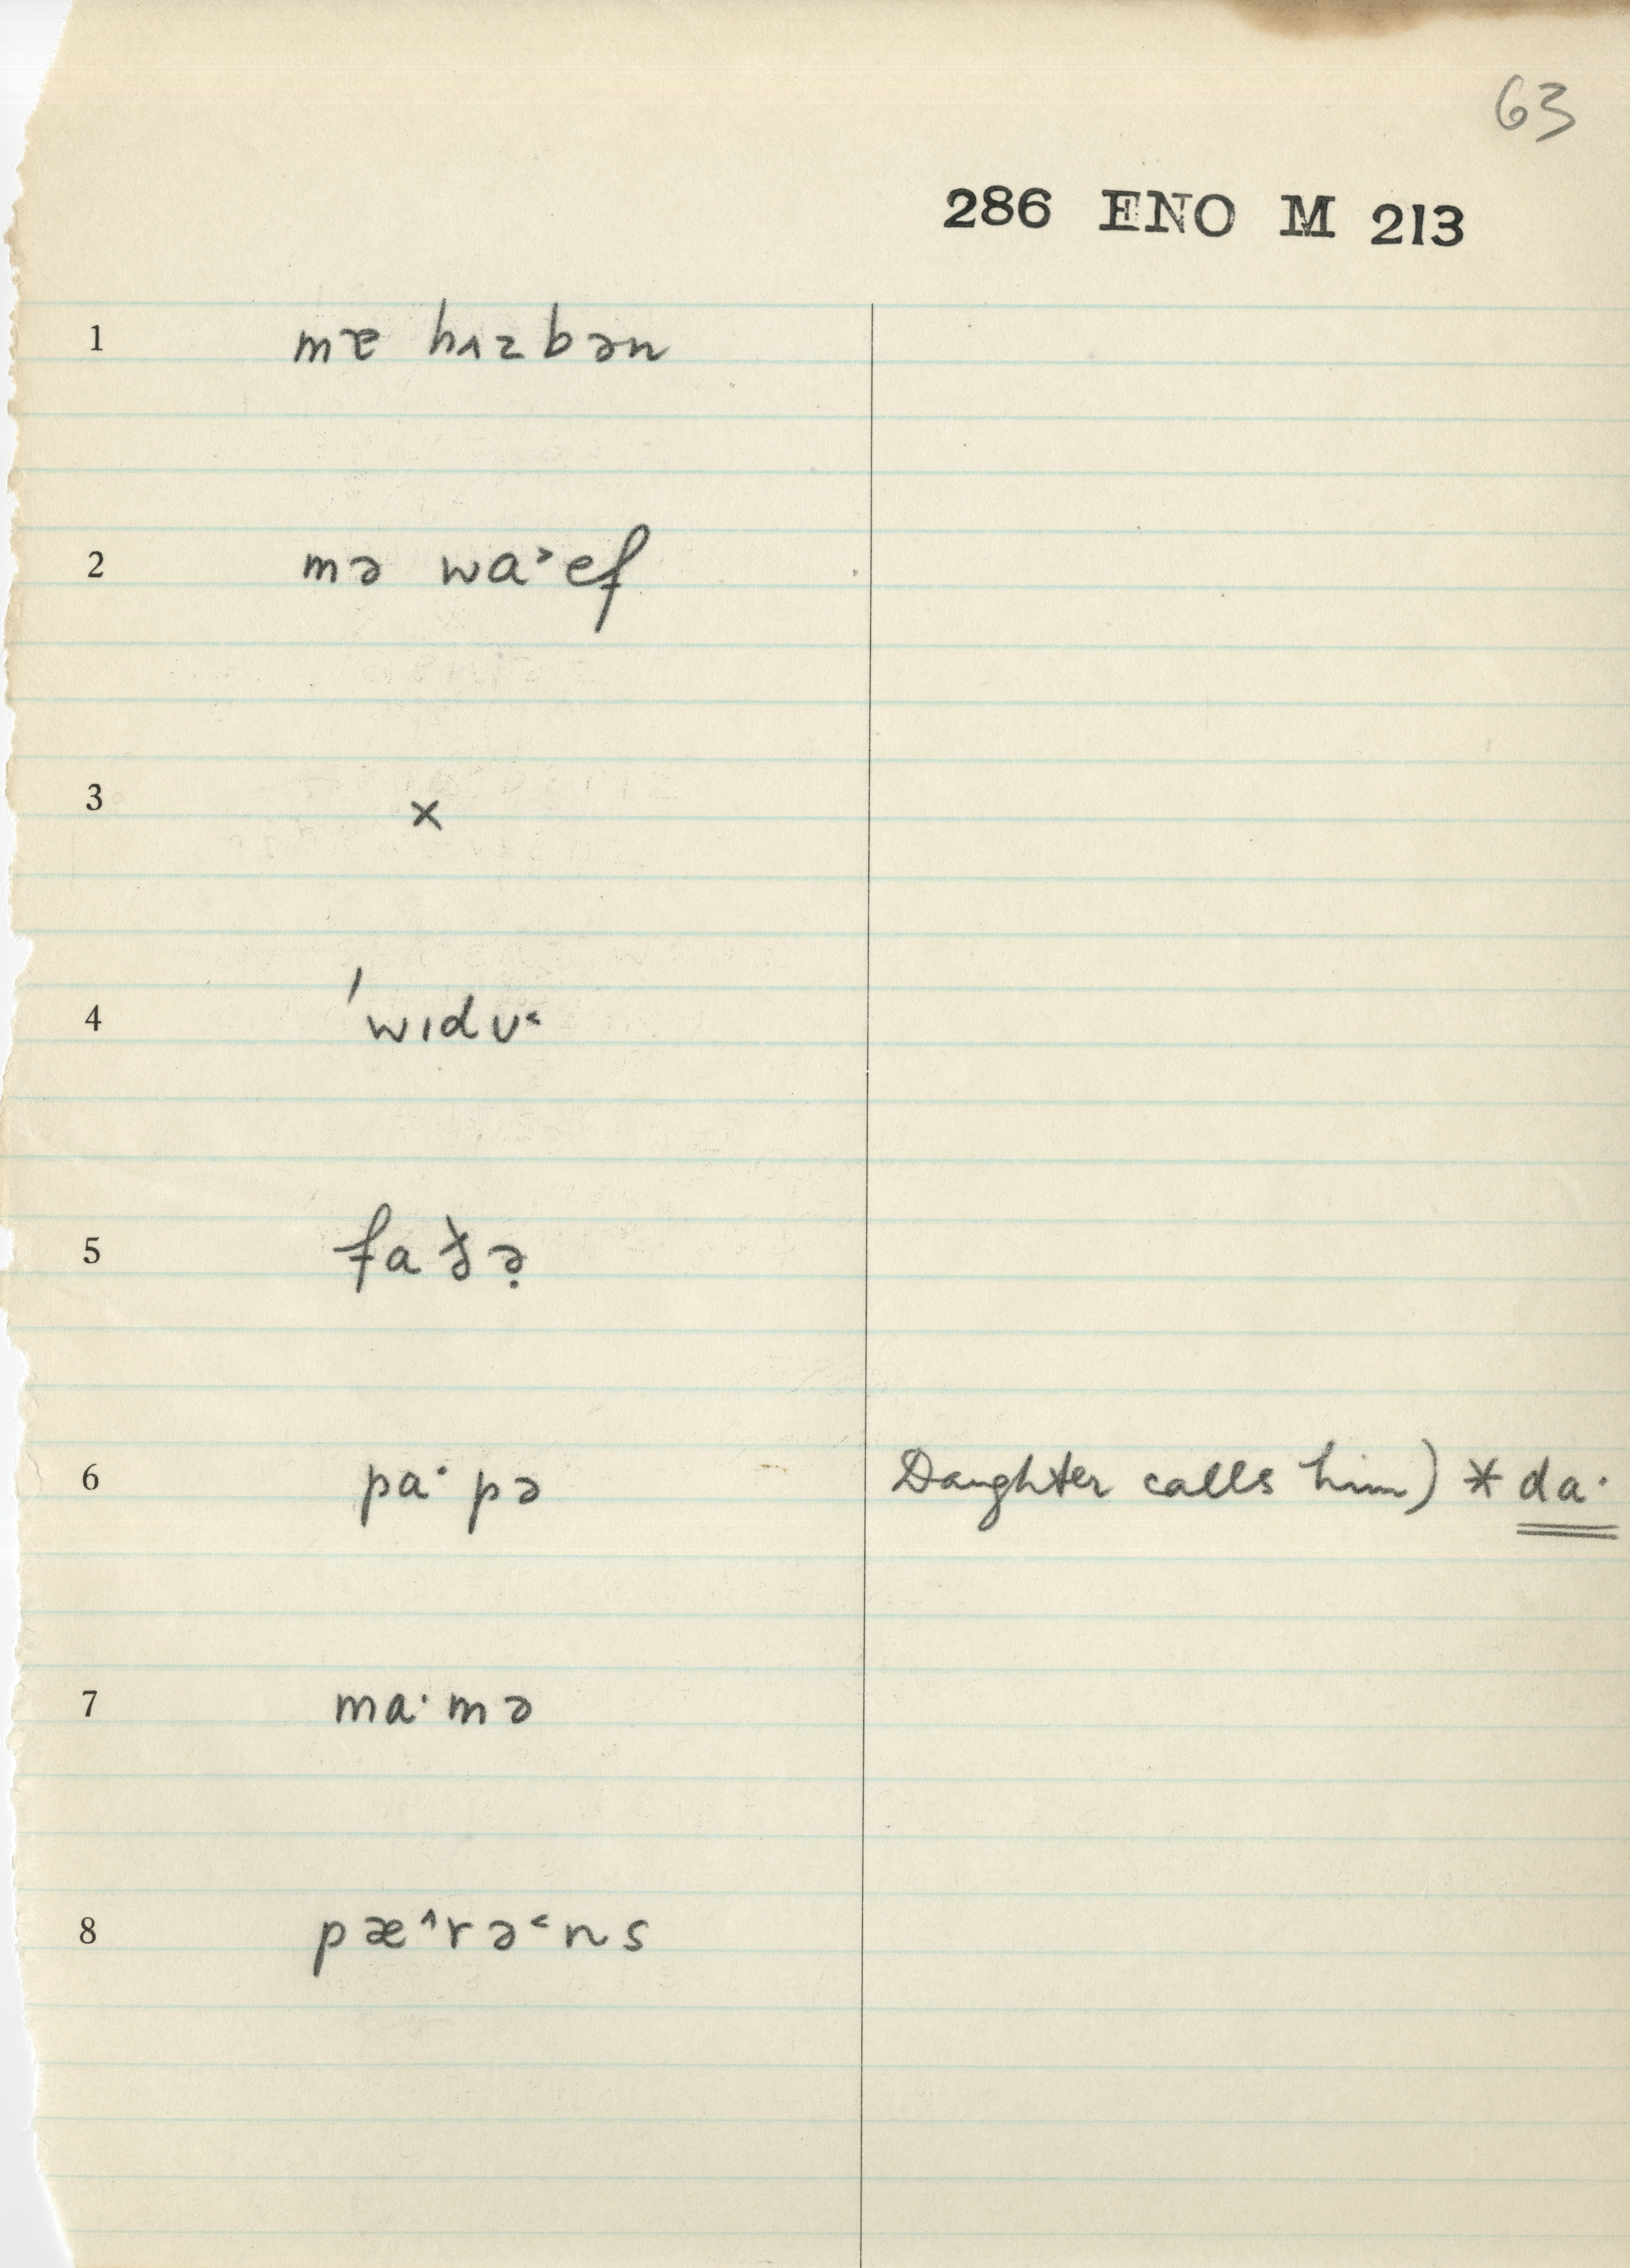 63
286 ENO M 213
1 mɐ hʌzbən
2 mə wa˃ef
3 ×
4 ˈwɪdʊ˂
5 faðə̣
6 pa·pə Daughter calls him) * da·
7 ma·mə
8 pæ˄rə˂ns